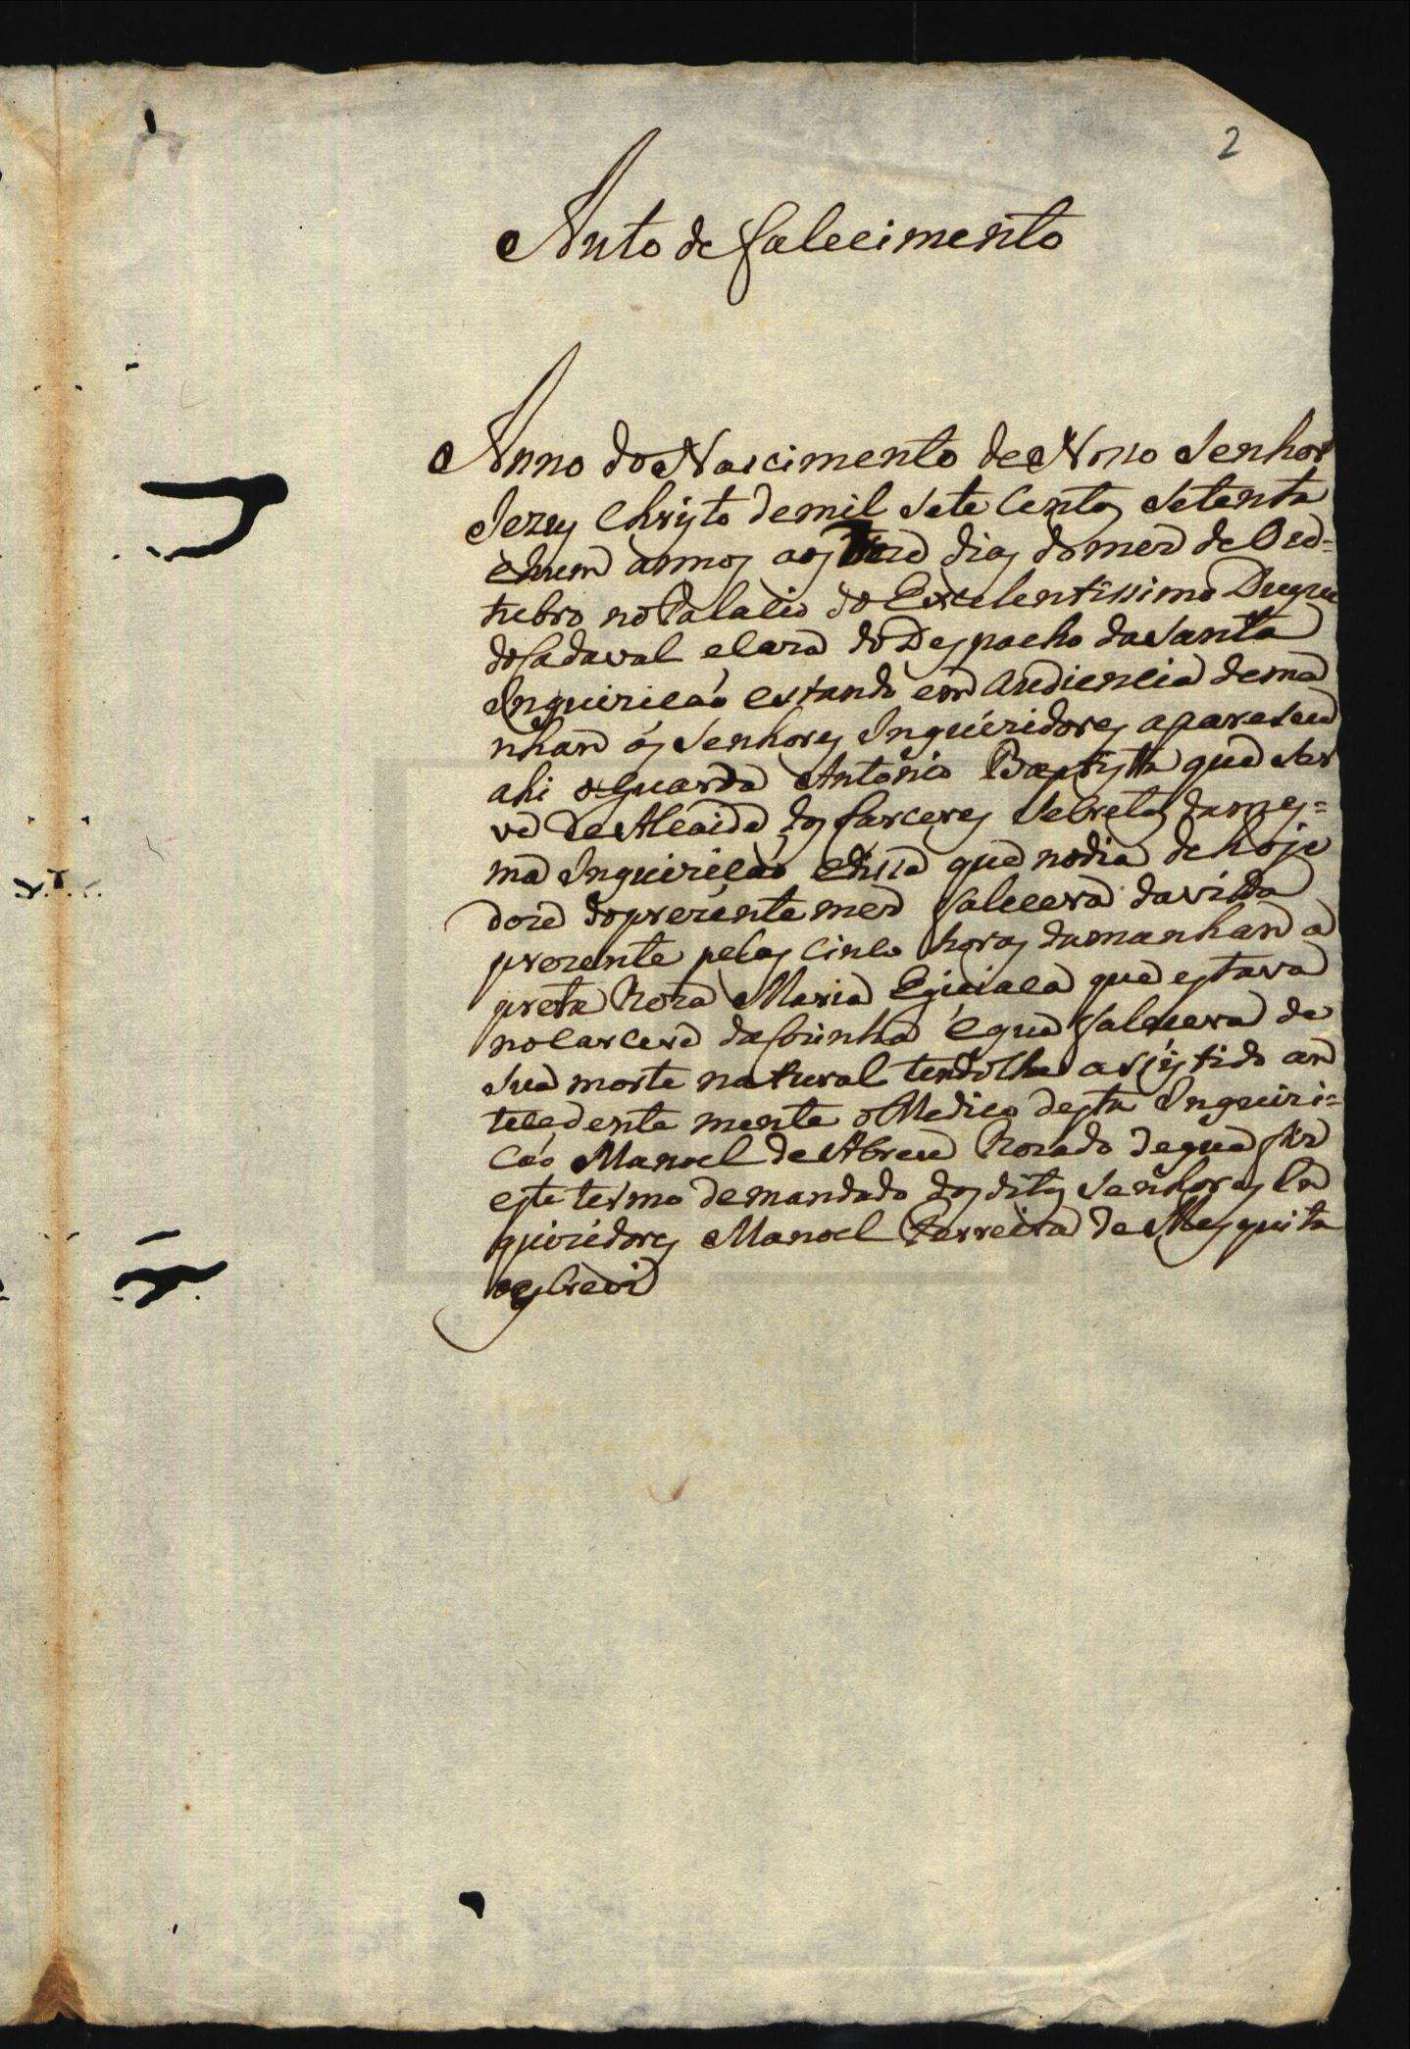 2
Auto de falecimento
Anno do Nascimento de Nosso Senhor
Jezus Christo de mil Sete Centos Setenta
e hum annos aos doze dias do mez de Ou=
tubro no Palacio do Excelentissimo Duque
do Cadaval e Caza do Despacho da Santa
Inquiricáo estando em audiencia de ma
nham os Senhores Inquizidores apareseu
ahi o Guarda Antonio Baptista que Ser
ve de Alcaide dos Carceres Secretos da mes=
ma Inquiricáo e disse que no dia de hoje
doze do prezente mez falecera da vida
prezente pelas Cinco horas da manham a
preta Roza Maria Egiciaca que estava
no Carcere da Cozinha e que falecera de
Sua morte natural tendolhe asistido an
tecedente mente o Medico desta Inquiri=
cáo Manoel de Abreu Rozado de que fiz
este termo de mandado dos ditos Senhores In
quizidores Manoel Ferreira de Mesquita
o escrevi